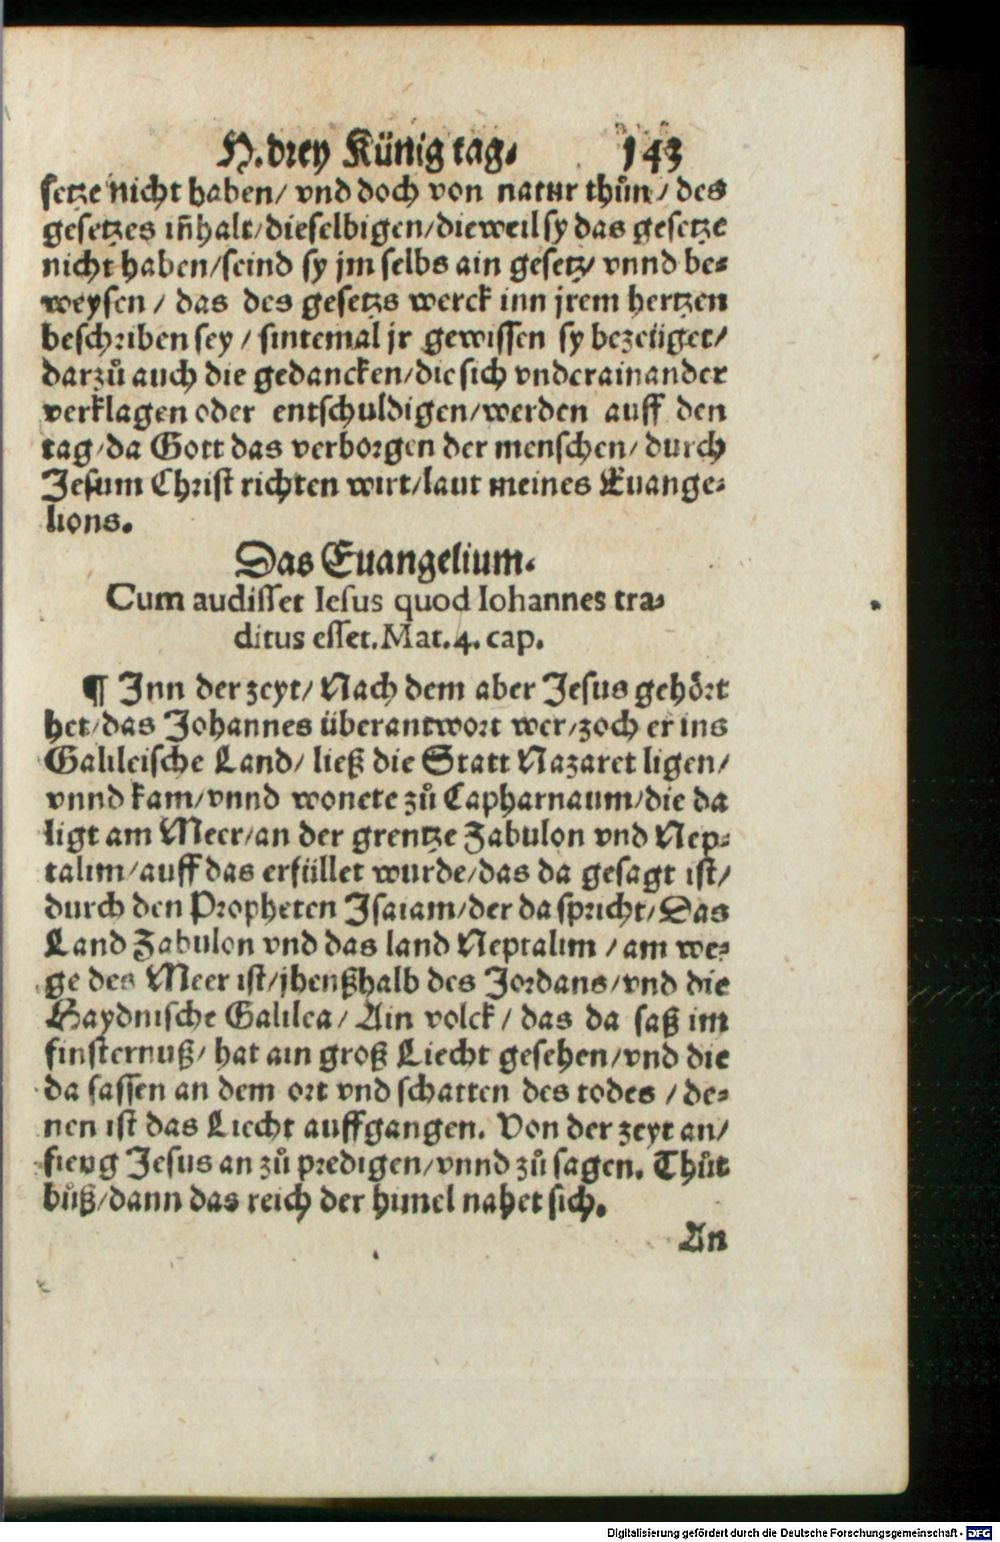 H. drey Künig tag. 143
setze nicht haben/ vnd doch von natur thůn/ des
gesetzes iñhalt/dieselbigen/dieweil sy das gesetze
nicht haben/seind sy jm selbs ain gesetz/ vnnd be-
weysen/ das des gesetzs werck inn jrem hertzen
beschriben sey/ sintemal jr gewissen sy bezeüget/
darzů auch die gedancken/die sich vnderainander
verklagen oder entschuldigen/werden auff den
tag/da Gott das verborgen der menschen/ durch
Jesum Christ richten wirt/laut meines Euange-
lions.
Das Euangelium.
Cum audisset Iesus quod Iohannes tra-
ditus esset. Mat. 4. cap.
¶ Jnn der zeyt/ Nach dem aber Jesus gehört
het/das Johannes überantwort wer/zoch er ins
Galileische Land/ ließ die Statt Nazaret ligen/
vnnd kam/vnnd wonete zů Capharnaum/die da
ligt am Meer/an der grentze Zabulon vnd Nep-
talim/auff das erfüllet wurde/das da gesagt ist/
durch den Propheten Jsaiam/der da spricht/Das
Land Zabulon vnd das land Neptalim/am we-
ge des Meer ist/jhenßhalb des Jordans/vnd die
Haydnische Galilea/ Ain volck/ das da saß im
finsternuß/ hat ain groß Liecht gesehen/vnd die
da sassen an dem ort vnd schatten des todes/ de-
nen ist das Liecht auffgangen. Von der zeyt an/
fieng Jesus an zů predigen/vnnd zů sagen. Thůt
bůß/dann das reich der himel nahet sich.
An
Digitalisierung gefördert durch die Deutsche Forschungsgemeinschaft - DFG